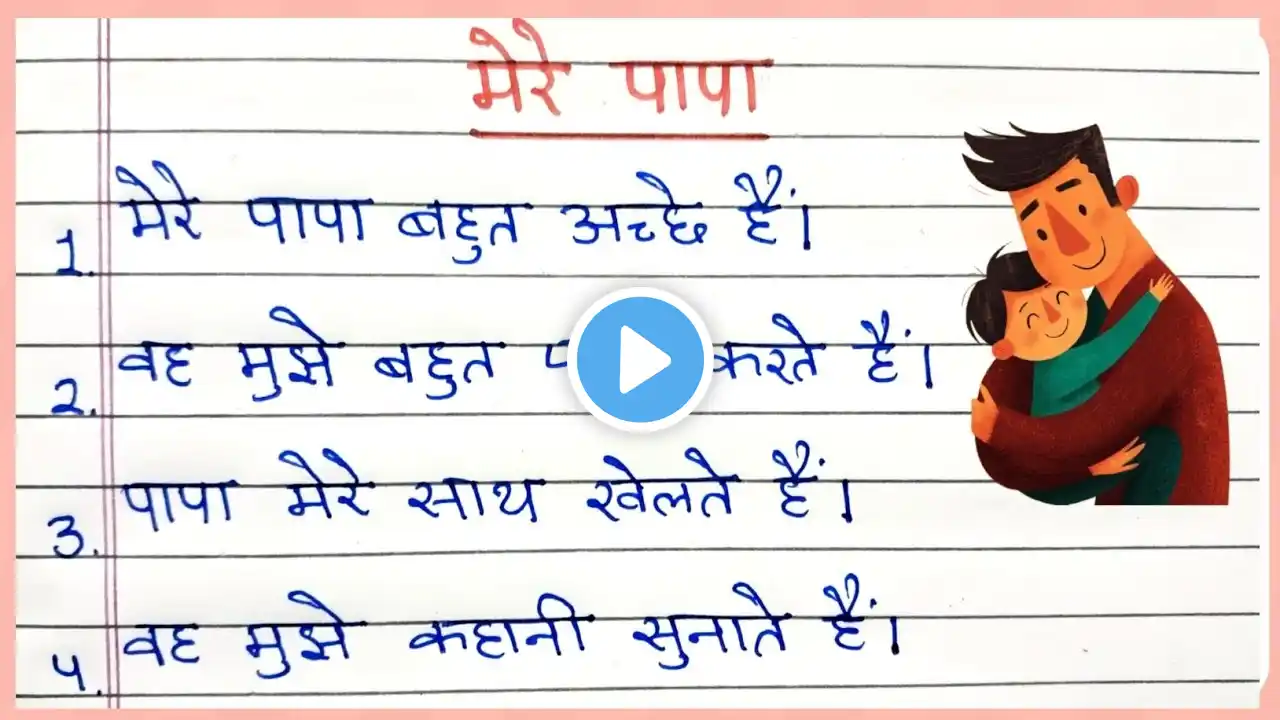 मेरे पापा
1. मेरे पापा बहुत अच्छे हैं।
2. वह मुझे बहुत करते हैं।
3. पापा मेरे साथ खेलते हैं।
4. वह मुझे कहानी सुनाते हैं।